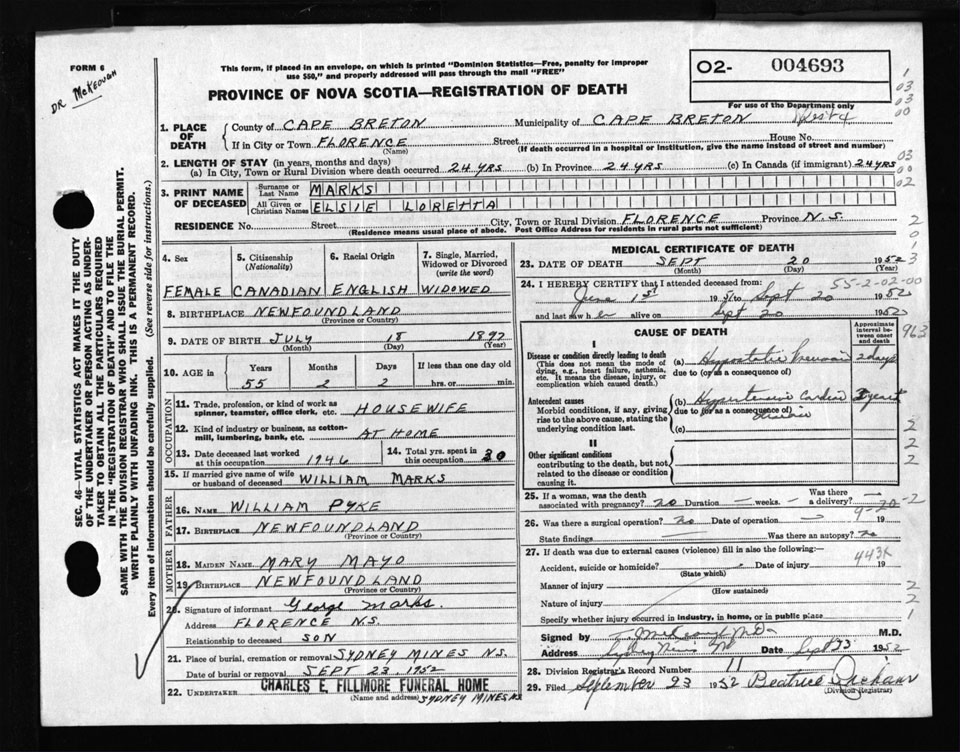 FORM 6
DR. McKEOUGH
This form, if placed in an envelope, on which is printed "Dominion Statistics—Free, penalty for improper
use $50," and properly addressed will pass through the mail "FREE"
O2- 004693
For use of the Department only
PROVINCE OF NOVA SCOTIA—REGISTRATION OF DEATH
1. PLACE OF DEATH
County of CAPE BRETON Municipality of CAPE BRETON
If in City or Town FLORENCE Street House No.
(Name) (If death occurred in a hospital or institution, give the name instead of street and number)
2. LENGTH OF STAY (in years, months and days)
(a) In City, Town or Rural Division where death occurred 24 YRS (b) In Province 24 YRS (c) In Canada (if immigrant) 24 YRS
3. PRINT NAME OF DECEASED
Surname or Last Name MARKS
All Given or Christian Names ELSIE LORETTA
RESIDENCE No. Street City, Town or Rural Division FLORENCE Province N.S.
(Residence means usual place of abode. Post Office Address for residents in rural parts not sufficient)
4. Sex 5. Citizenship (Nationality) 6. Racial Origin 7. Single, Married, Widowed or Divorced (write the word)
FEMALE CANADIAN ENGLISH WIDOWED
8. BIRTHPLACE NEWFOUNDLAND
(Province or Country)
9. DATE OF BIRTH JULY 18 1897
(Month) (Day) (Year)
10. AGE in Years Months Days If less than one day old
55 2 2 hrs. or min.
OCCUPATION
11. Trade, profession, or kind of work as spinner, teamster, office clerk, etc. HOUSEWIFE
12. Kind of industry or business, as cotton-mill, lumbering, bank, etc. AT HOME
13. Date deceased last worked at this occupation 1946 14. Total yrs. spent in this occupation 30
15. If married give name of wife or husband of deceased WILLIAM MARKS
FATHER
16. NAME WILLIAM PYKE
17. BIRTHPLACE NEWFOUNDLAND
(Province or Country)
MOTHER
18. MAIDEN NAME MARY MAYO
19. BIRTHPLACE NEWFOUNDLAND
(Province or Country)
20. Signature of informant George Marks.
Address FLORENCE N.S.
Relationship to deceased SON
21. Place of burial, cremation or removal SYDNEY MINES N.S.
Date of burial or removal SEPT 23, 1952
22. UNDERTAKER CHARLES E. FILLMORE FUNERAL HOME
(Name and address) SYDNEY MINES, N.S
MEDICAL CERTIFICATE OF DEATH
23. DATE OF DEATH SEPT 20 1952
(Month) (Day) (Year)
24. I HEREBY CERTIFY that I attended deceased from: 55-2-02-00
June 1st 1951 to Sept 20 1952
and last saw her alive on Sept 20 1952
CAUSE OF DEATH
Approximate interval between onset and death
963
I
Disease or condition directly leading to death
(This does not mean the mode of dying, e.g., heart failure, asthenia, etc. It means the disease, injury, or complication which caused death.)
(a) Hypostatic Pneumonia 2 days
due to (or as a consequence of)
Antecedent causes
Morbid conditions, if any, giving rise to the above cause, stating the underlying condition last.
(b) Hypertensive Cardiac years
due to (or as a consequence of)
(c)
II
Other significant conditions
contributing to the death, but not related to the disease or condition causing it.
25. If a woman, was the death associated with pregnancy? no Duration — weeks. — Was there a delivery? —
26. Was there a surgical operation? no Date of operation — 19
State findings — Was there an autopsy? no
27. If death was due to external causes (violence) fill in also the following:—
443X
Accident, suicide or homicide? Date of injury 19
(State which)
Manner of injury
(How sustained)
Nature of injury
Specify whether injury occurred in industry, in home, or in public place
Signed by M.D.
Address Sydney Mines Date Sept 23 1952
28. Division Registrar's Record Number 11
29. Filed September 23 1952 Beatrice
(Division Registrar)
SEC. 46—VITAL STATISTICS ACT MAKES IT THE DUTY
OF THE UNDERTAKER OR PERSON ACTING AS UNDER-
TAKER TO OBTAIN ALL THE PARTICULARS REQUIRED
IN THE "REGISTRATION OF DEATH" AND TO FILE THE
SAME WITH THE DIVISION REGISTRAR WHO SHALL ISSUE THE BURIAL PERMIT.
WRITE PLAINLY WITH UNFADING INK. THIS IS A PERMANENT RECORD.
Every item of information should be carefully supplied. (See reverse side for instructions.)